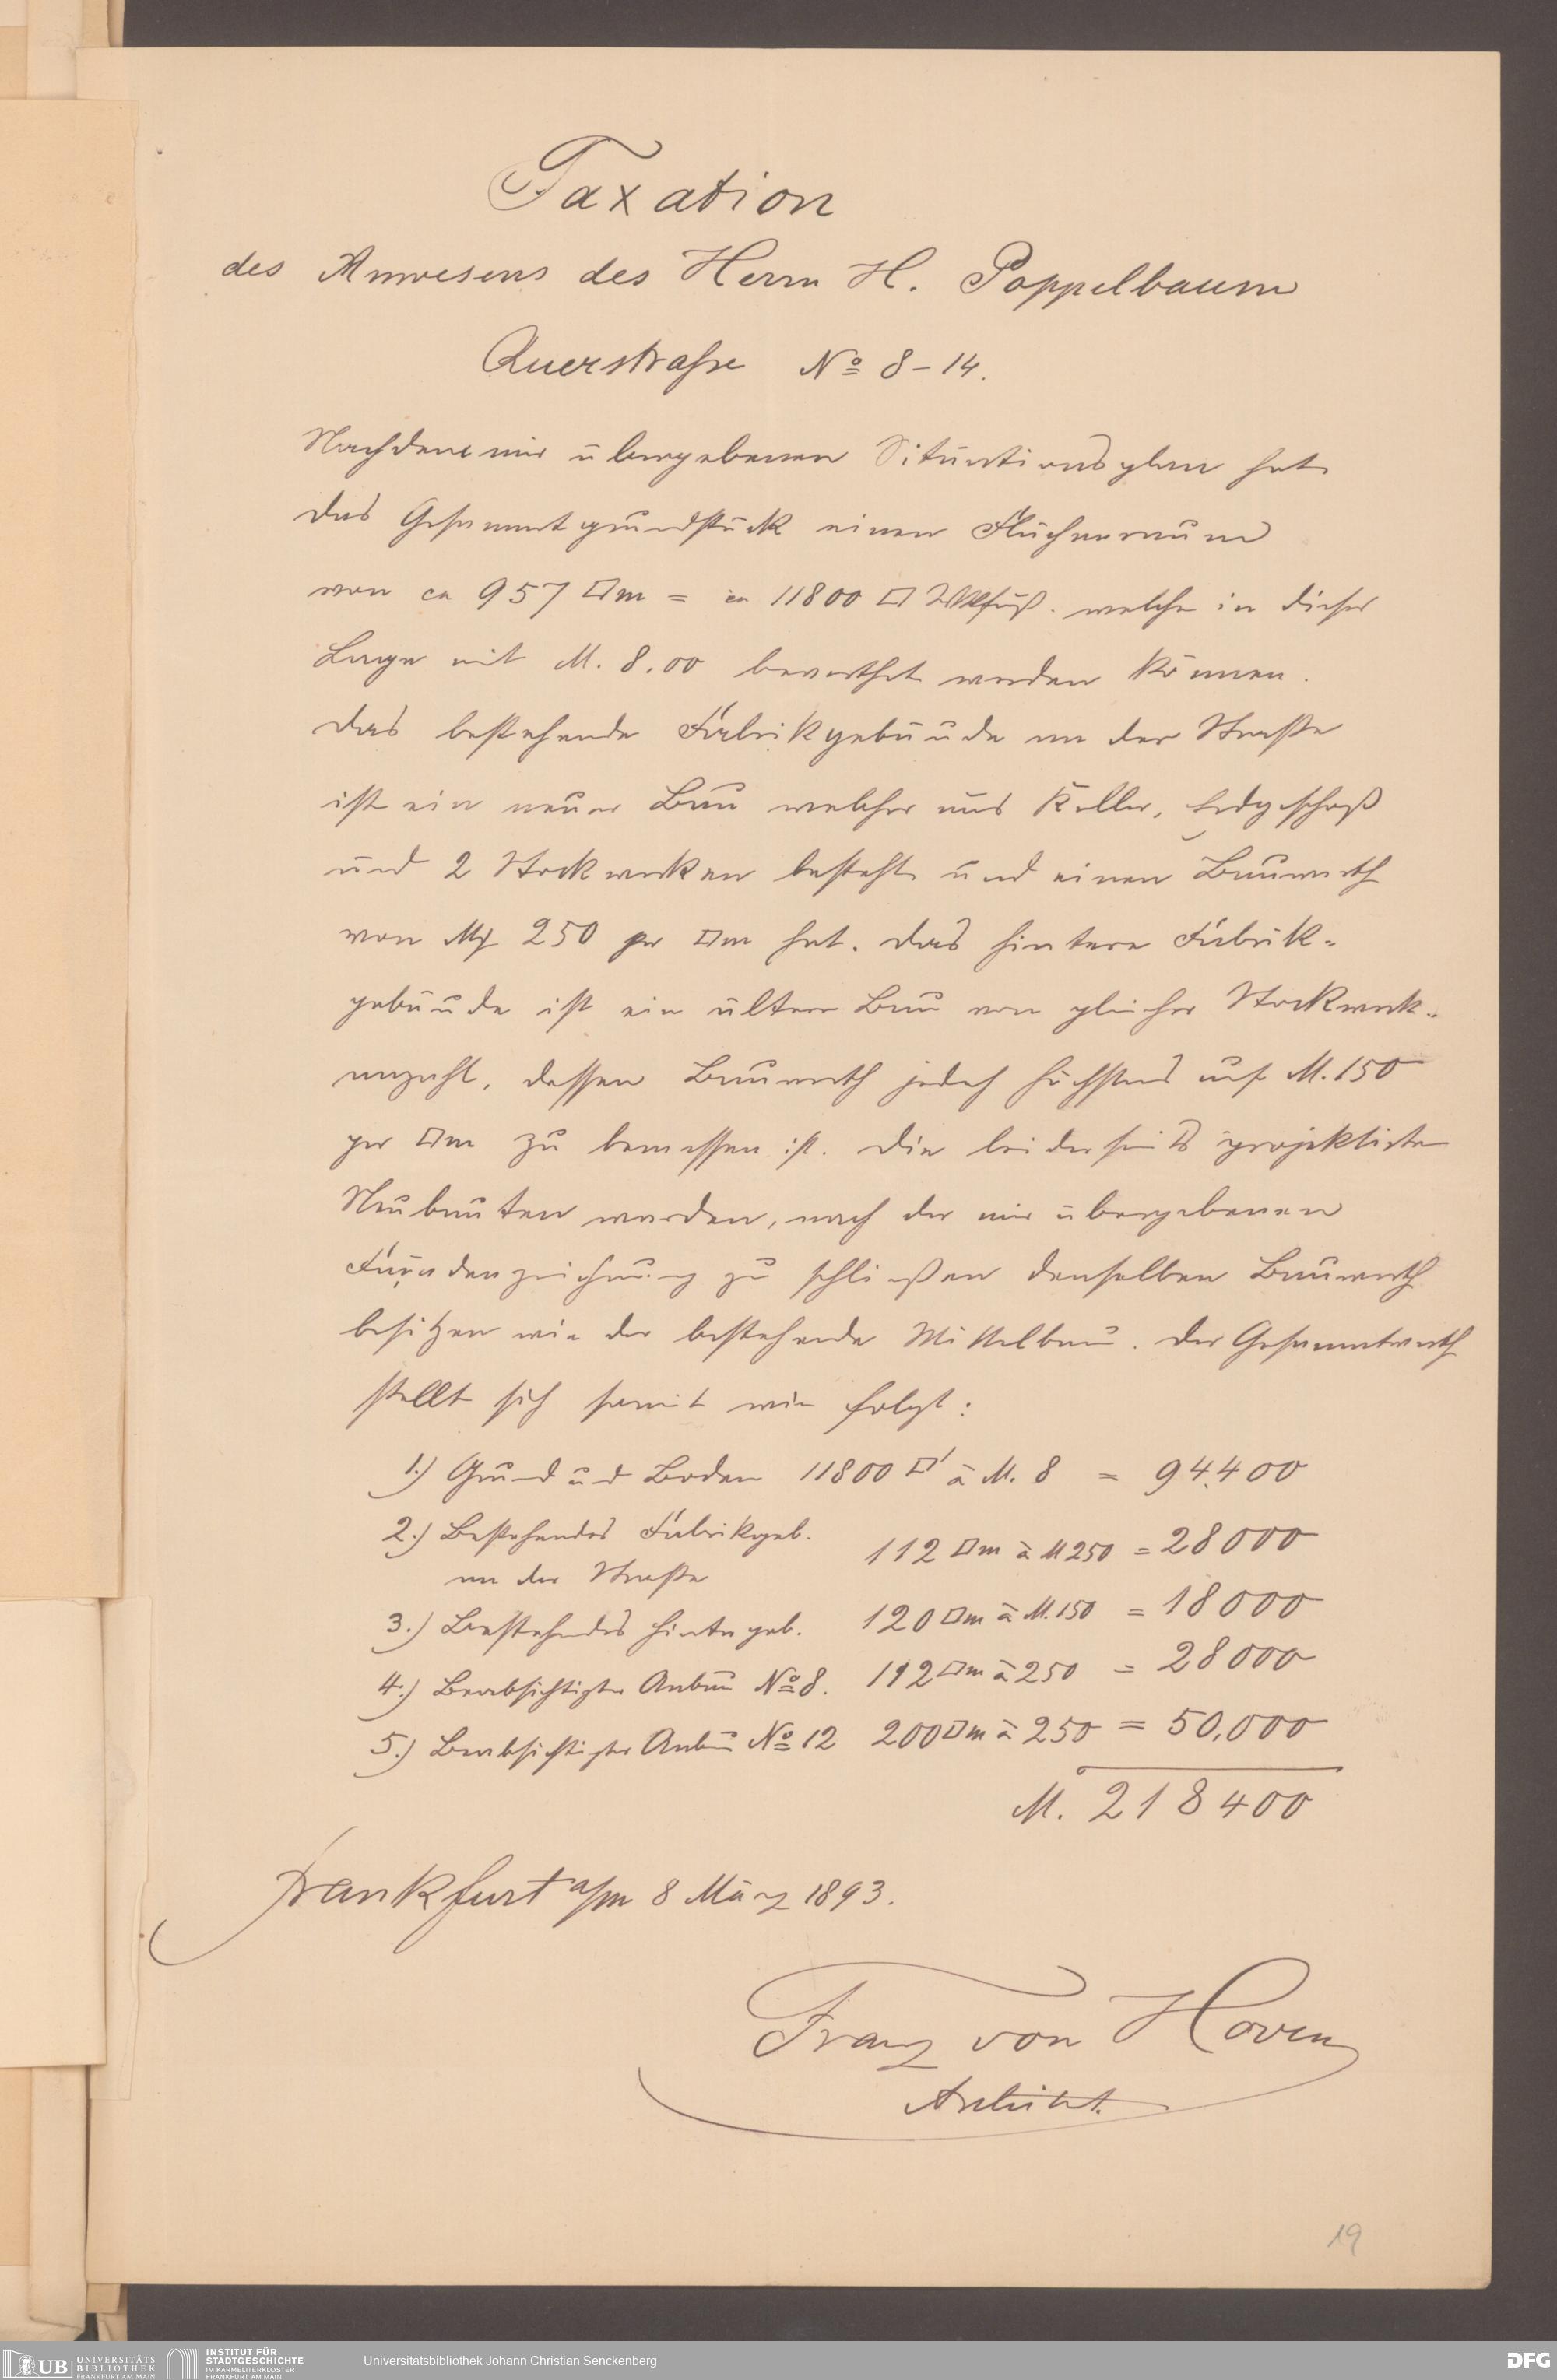 Taxation
des Anwesens des Herrn H. Poppelbaum
Querstraße No 8–14.
Nach dem mir übergebenen Situationsplan hat
das Gesammtgrundstück einen Flächenraum
von ca 957 □m = ca 11800 □ Wkfuß. welche in dieser
Lage mit M. 8.00 bewerthet werden können.
Das bestehende Fabrikgebäude an der Straße
ist ein neuer Bau welcher aus Keller, Erdgeschoß
und 2 Stockwerken besteht und einen Bauwerth
von Mk 250 per □m hat. Das hintere Fabrik-
gebäude ist ein älterer Bau von gleicher Stockwerk-
anzahl, dessen Bauwerth jedoch höchstens auf M. 150
per □m zu bemessen ist. Die beiderseits projektirten
Neubauten werden, nach der mir übergebenen
Façadenzeichnung zu schließen denselben Bauwerth
besitzen wie der bestehende Mittelbau. Der Gesammtwerth
stellt sich somit wie folgt:
1.) Grund und Boden 11800 □' à M. 8 = 94.400
2.) Bestehendes Fabrikgeb.
an der Straße 112 □m à M 250 = 28000
3.) Bestehendes Hintergeb. 120 □m à M. 150 = 18000
4.) Beabsichtigter Anbau No 8. 112 □m à 250 = 28000
5.) Beabsichtigter Anbau No 12 200 □m à 250 = 50.000
M. 218400
Frankfurt a/m 8 März 1893.
Franz von Hoven
Architekt.
19
UB UNIVERSITÄTS BIBLIOTHEK FRANKFURT AM MAIN
INSTITUT FÜR STADTGESCHICHTE IM KARMELITERKLOSTER FRANKFURT AM MAIN
Universitätsbibliothek Johann Christian Senckenberg
DFG